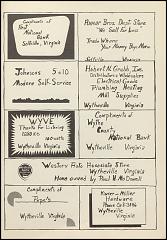 Compliments of
First
National
Bank
Saltville, Virginia
Dept. Store
"We Sell For Less"
Trade Where
Your Money Buys More
Saltville Virginia
Johnsons 5 & 10
Modern Self-Service
Electrical Goods
Plumbing Heating
Mill Supplies
Wytheville Virginia
WYVE
Thanks For Listening
Wytheville Virginia
Compliments of
Wythe
County
National Bank
Wytheville, Virginia
Western Auto Associate Store
Wytheville Virginia
Home owned by Paul B. McDowell
Compliments of
Pepsi's
Wytheville Virginia
Hardware
Wytheville
Virginia